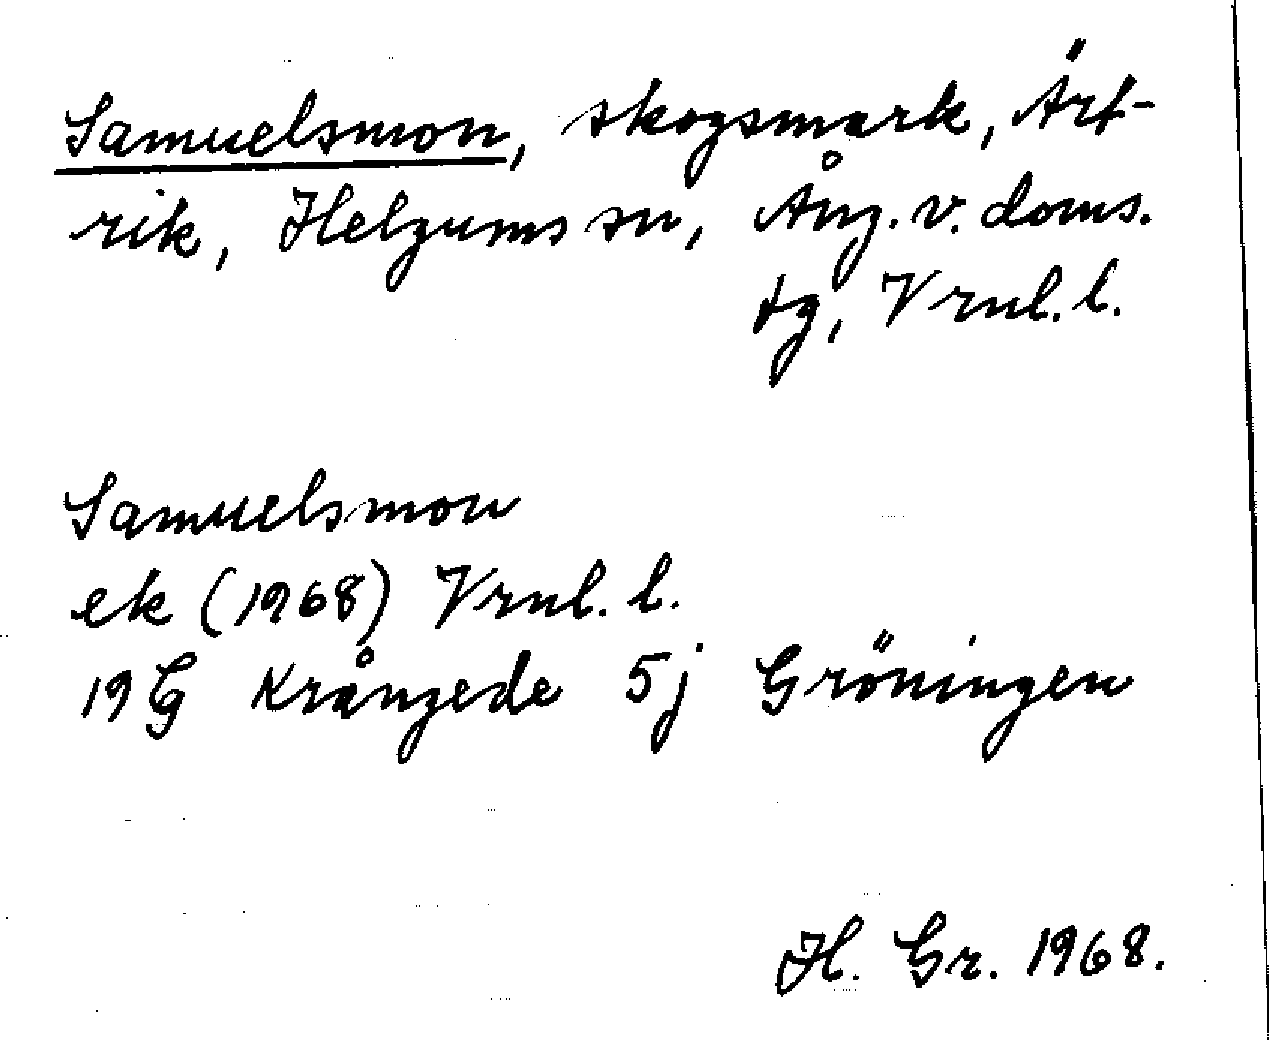 Samuelsmon, skogsmark, Ärt-
rik, Helgums sn, Ång. v. doms.
tg, Vrnl. l.
Samuelsmon
ek (1968) Vrnl. l.
19G Krångede 5j Gröningen
H. Gr. 1968.